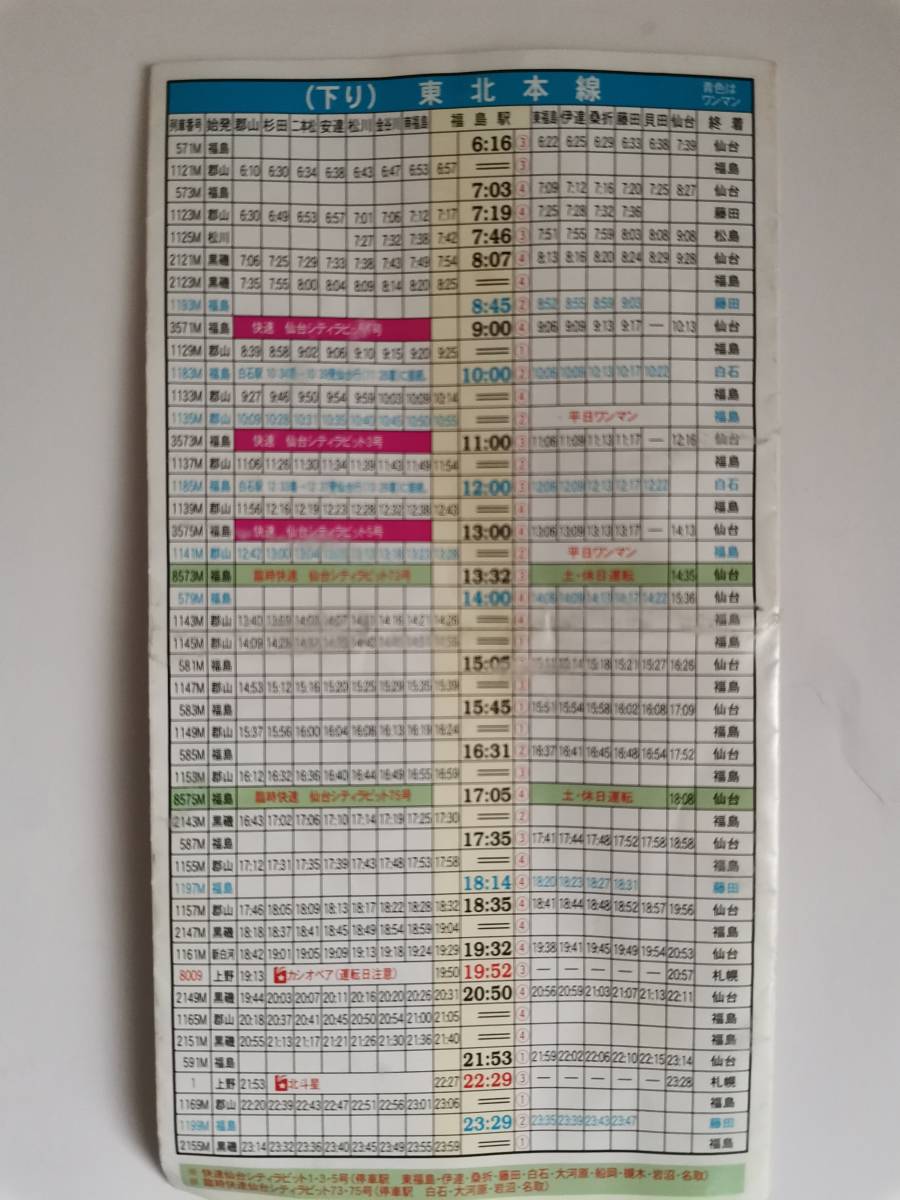 (下り) 東北本線 青色は ワンマン
列車番号 始発 郡山 杉田 二本松 安達 松川 金谷川 南福島 福島駅 東福島 伊達 桑折 藤田 貝田 仙台 終着
571M 福島 6:16 ③ 6:22 6:25 6:29 6:33 6:38 7:39 仙台
1121M 郡山 6:10 6:30 6:34 6:38 6:43 6:47 6:53 6:57 ═ ③ 福島
573M 福島 7:03 ④ 7:09 7:12 7:16 7:20 7:25 8:27 仙台
1123M 郡山 6:30 6:49 6:53 6:57 7:01 7:06 7:12 7:17 7:19 ④ 7:25 7:28 7:32 7:36 藤田
1125M 松川 7:27 7:32 7:38 7:42 7:46 ③ 7:51 7:55 7:59 8:03 8:08 9:08 松島
2121M 黒磯 7:06 7:25 7:29 7:33 7:38 7:43 7:49 7:54 8:07 ④ 8:13 8:16 8:20 8:24 8:29 9:28 仙台
2123M 黒磯 7:35 7:55 8:00 8:04 8:09 8:14 8:20 8:25 ═ ④ 福島
1193M 福島 8:45 ② 8:52 8:55 8:59 9:03 藤田
3571M 福島 快速 仙台シティラビット1号 9:00 ④ 9:06 9:09 9:13 9:17 — 10:13 仙台
1129M 郡山 8:39 8:58 9:02 9:06 9:10 9:15 9:20 9:25 ═ ① 福島
1183M 福島 白石駅 10:00 ② 10:06 10:09 10:13 10:17 10:22 白石
1133M 郡山 9:27 9:46 9:50 9:54 9:59 10:03 10:09 10:14 ═ ④ 福島
1135M 郡山 10:09 10:28 10:31 10:35 10:40 10:45 10:50 10:55 ═ ② 平日ワンマン 福島
3573M 福島 快速 仙台シティラビット3号 11:00 ③ 11:06 11:09 11:13 11:17 — 12:16 仙台
1137M 郡山 11:06 11:26 11:30 11:34 11:39 11:43 11:49 11:54 ═ ② 福島
1185M 福島 白石駅 12:00 ③ 12:06 12:09 12:13 12:17 12:22 白石
1139M 郡山 11:56 12:16 12:19 12:23 12:28 12:32 12:38 12:43 ═ ④ 福島
3575M 福島 快速 仙台シティラビット5号 13:00 ④ 13:06 13:09 13:13 13:17 — 14:13 仙台
1141M 郡山 12:42 13:00 13:04 ═ ② 平日ワンマン 福島
8573M 福島 臨時快速 仙台シティラビット73号 13:32 ③ 土・休日運転 14:35 仙台
579M 福島 14:00 14:06 14:09 14:13 14:17 14:22 15:36 仙台
1143M 郡山 13:40 ═ 福島
1145M 郡山 14:09 ═ 福島
581M 福島 15:05 15:14 15:18 15:21 15:27 16:26 仙台
1147M 郡山 14:53 15:12 15:16 15:20 15:25 15:29 15:35 15:39 ═ 福島
583M 福島 15:45 ① 15:51 15:54 15:58 16:02 16:08 17:09 仙台
1149M 郡山 15:37 15:56 16:00 16:04 16:08 16:13 16:19 16:24 ═ ① 福島
585M 福島 16:31 ② 16:37 16:41 16:45 16:48 16:54 17:52 仙台
1153M 郡山 16:12 16:32 16:36 16:40 16:44 16:49 16:55 16:59 ═ ③ 福島
8575M 福島 臨時快速 仙台シティラビット75号 17:05 ④ 土・休日運転 18:08 仙台
2143M 黒磯 16:43 17:02 17:06 17:10 17:14 17:19 17:25 17:30 ═ ② 福島
587M 福島 17:35 ③ 17:41 17:44 17:48 17:52 17:58 18:58 仙台
1155M 郡山 17:12 17:31 17:35 17:39 17:43 17:48 17:53 17:58 ═ ④ 福島
1197M 福島 18:14 ④ 18:20 18:23 18:27 18:31 藤田
1157M 郡山 17:46 18:05 18:09 18:13 18:17 18:22 18:28 18:32 18:35 ④ 18:41 18:44 18:48 18:52 18:57 19:56 仙台
2147M 黒磯 18:18 18:37 18:41 18:45 18:49 18:54 18:59 19:04 ═ ④ 福島
1161M 新白河 18:42 19:01 19:05 19:09 19:13 19:18 19:24 19:29 19:32 ④ 19:38 19:41 19:45 19:49 19:54 20:53 仙台
8009 上野 19:13 カシオペア(運転日注意) 19:50 19:52 ③ — — — — — 20:57 札幌
2149M 黒磯 19:44 20:03 20:07 20:11 20:16 20:20 20:26 20:31 20:50 ④ 20:56 20:59 21:03 21:07 21:13 22:11 仙台
1165M 郡山 20:18 20:37 20:41 20:45 20:50 20:54 21:00 21:05 ═ ④ 福島
2151M 黒磯 20:55 21:13 21:17 21:21 21:26 21:30 21:36 21:40 ═ ④ 福島
591M 福島 21:53 ① 21:59 22:02 22:06 22:10 22:15 23:14 仙台
1 上野 21:53 北斗星 22:27 22:29 ③ — — — — — 23:28 札幌
1169M 郡山 22:20 22:39 22:43 22:47 22:51 22:56 23:01 23:06 ═ ① 福島
1199M 福島 23:29 ② 23:35 23:39 23:43 23:47 藤田
2155M 黒磯 23:14 23:32 23:36 23:40 23:45 23:49 23:55 23:59 ═ ① 福島
※ 快速仙台シティラビット1・3・5号(停車駅 東福島・伊達・桑折・藤田・白石・大河原・船岡・槻木・岩沼・名取)
※ 臨時快速仙台シティラビット73・75号(停車駅 白石・大河原・岩沼・名取)